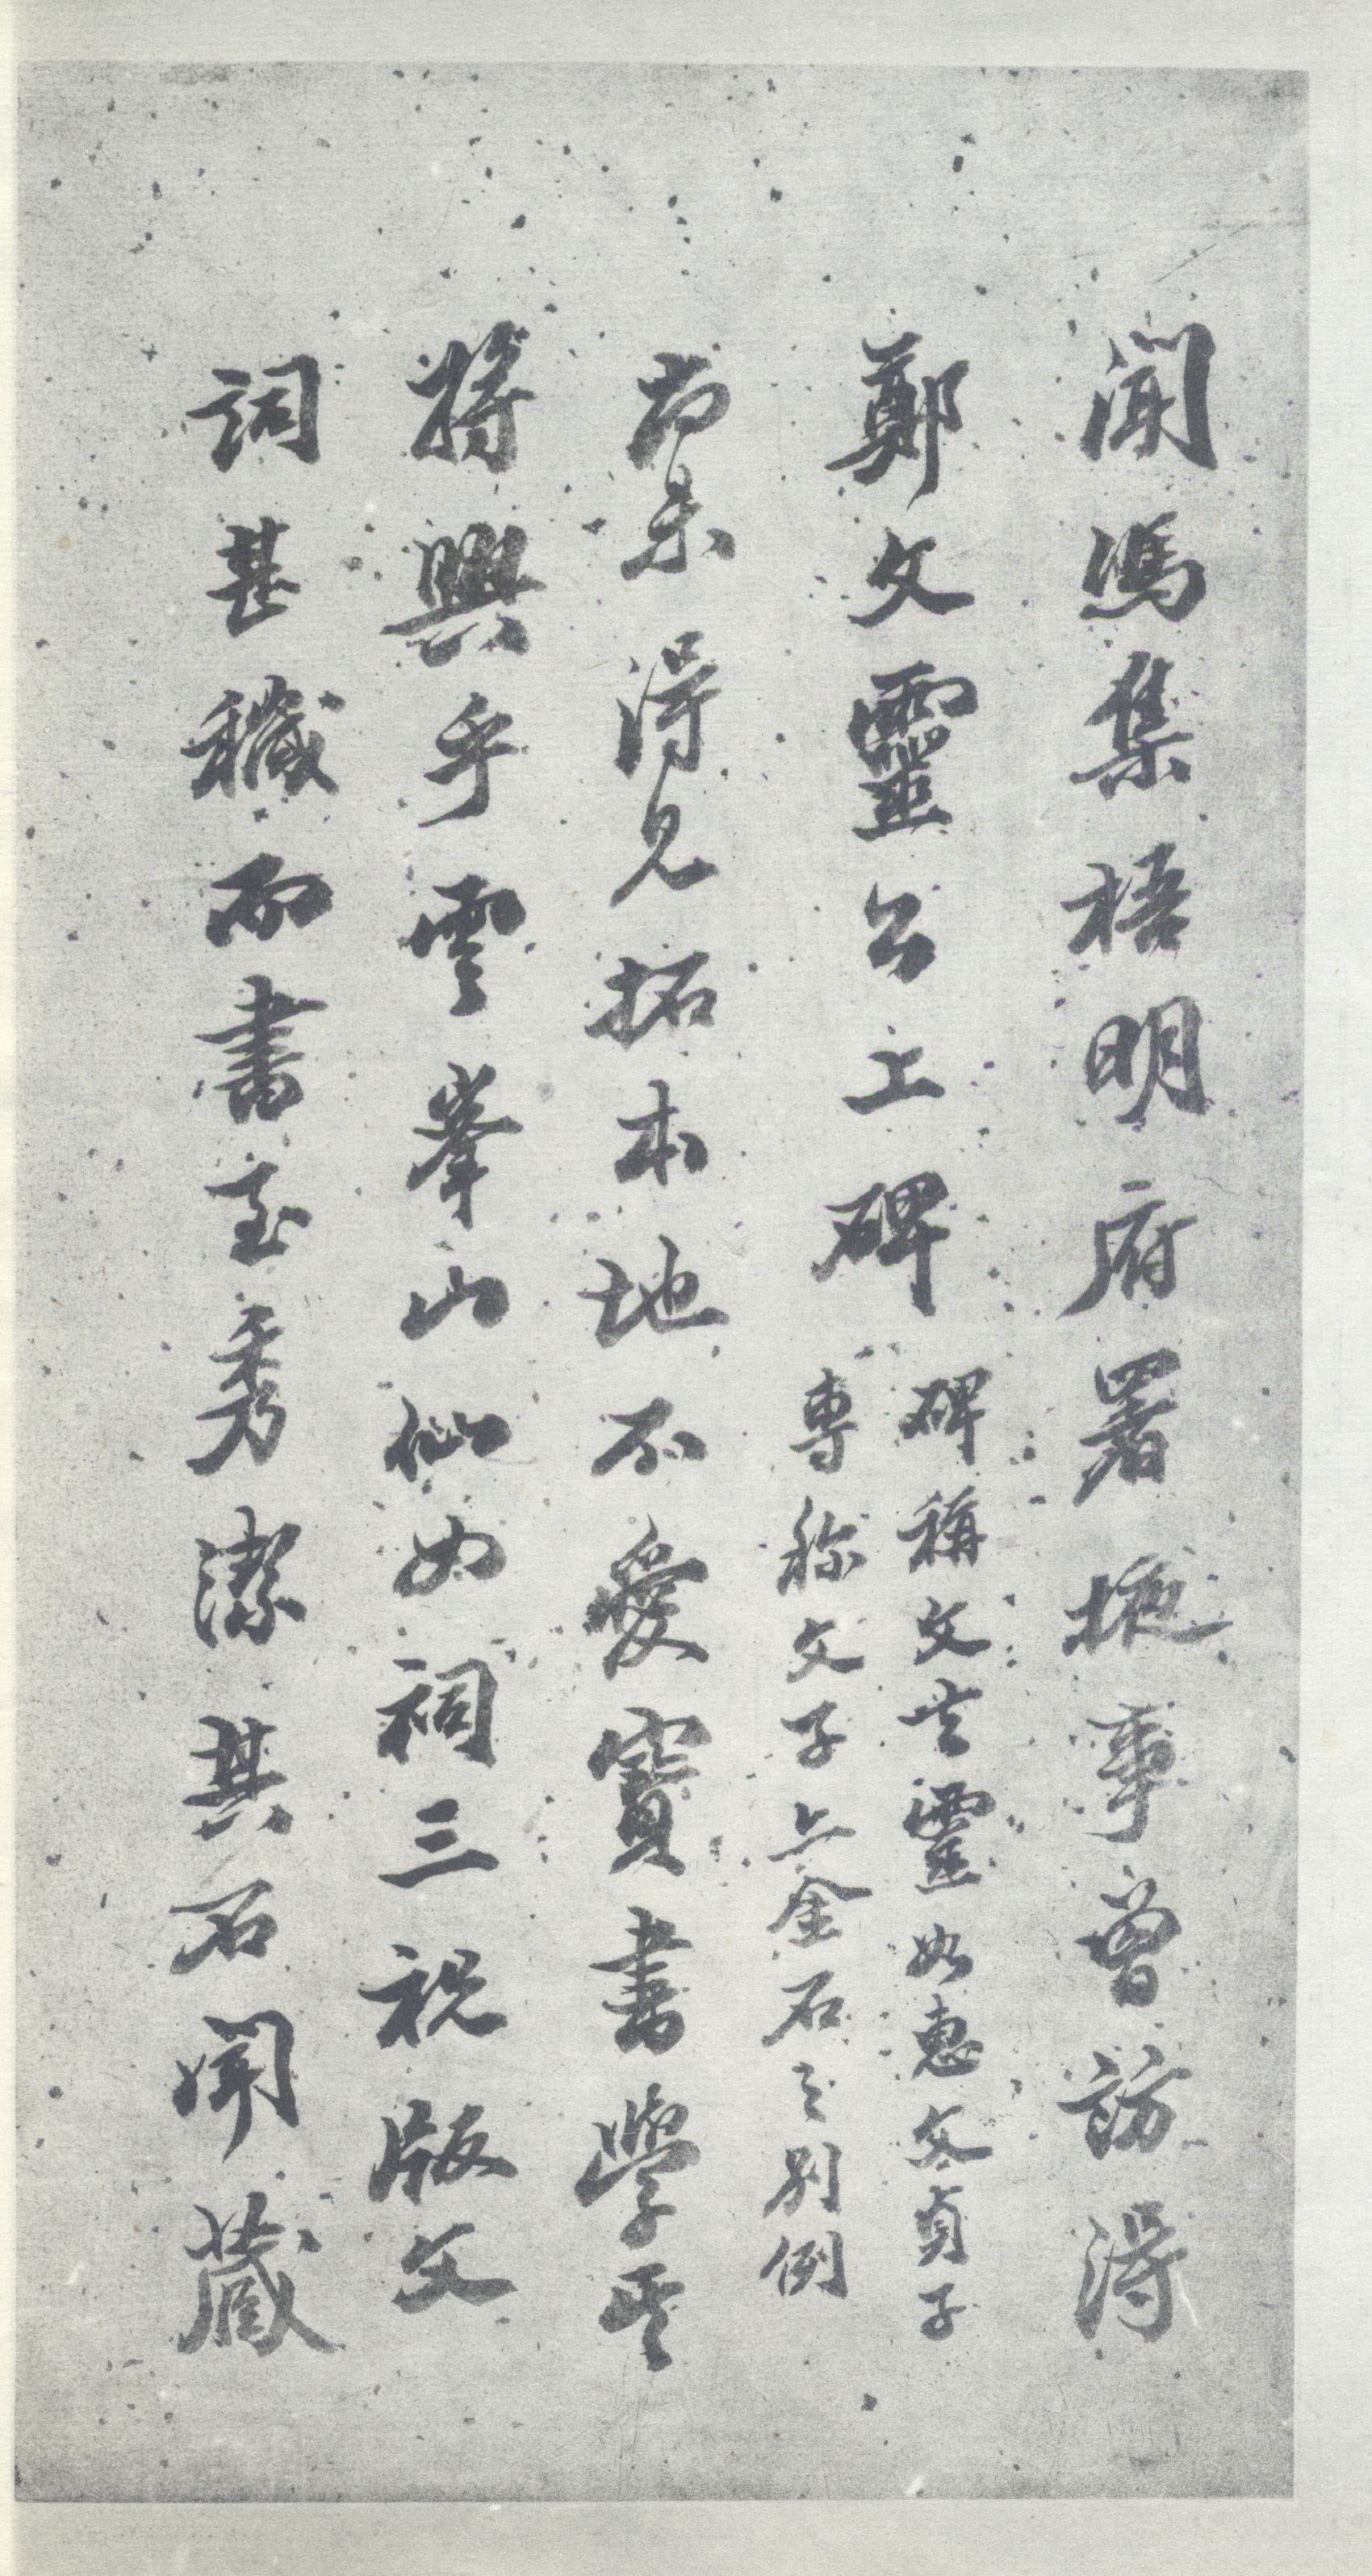 聞馮集梧明府署掖事曾訪得
鄭文靈公上碑
碑稱文靈如惠文貞子
專称文子亦金石之別例
尚未得見拓本地不愛寶書學其
將興乎雲峯山仙如祠三祝版文
詞甚穢而書至秀潔其石聞藏